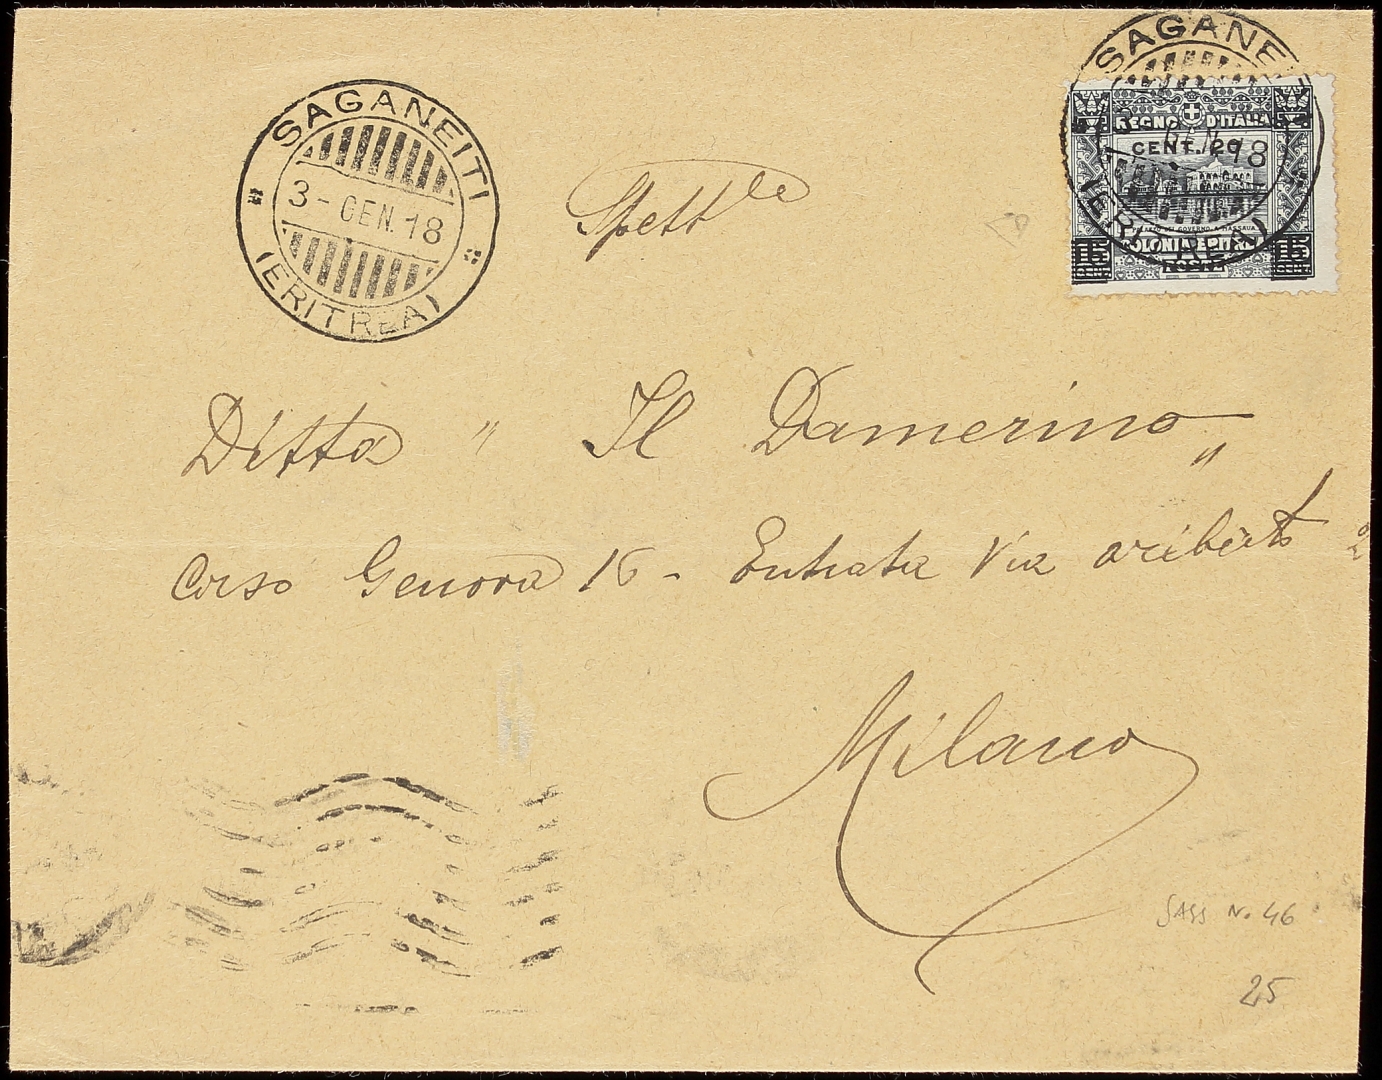 SAGANEITI
3 - GEN. 18
(ERITREA)
SAGANEITI
GEN. 18
(ERITREA)
REGNO D'ITALIA
CENT. 20
PALAZZO DEL GOVERNO A MASSAUA
COLONIA ERITREA
POSTE
15 CENT
15 CENT
Spettle
Ditta " Il Damerino "
Corso Genova 16 - Entrata Via Ariberto 2
Milano
SASS No. 46
25